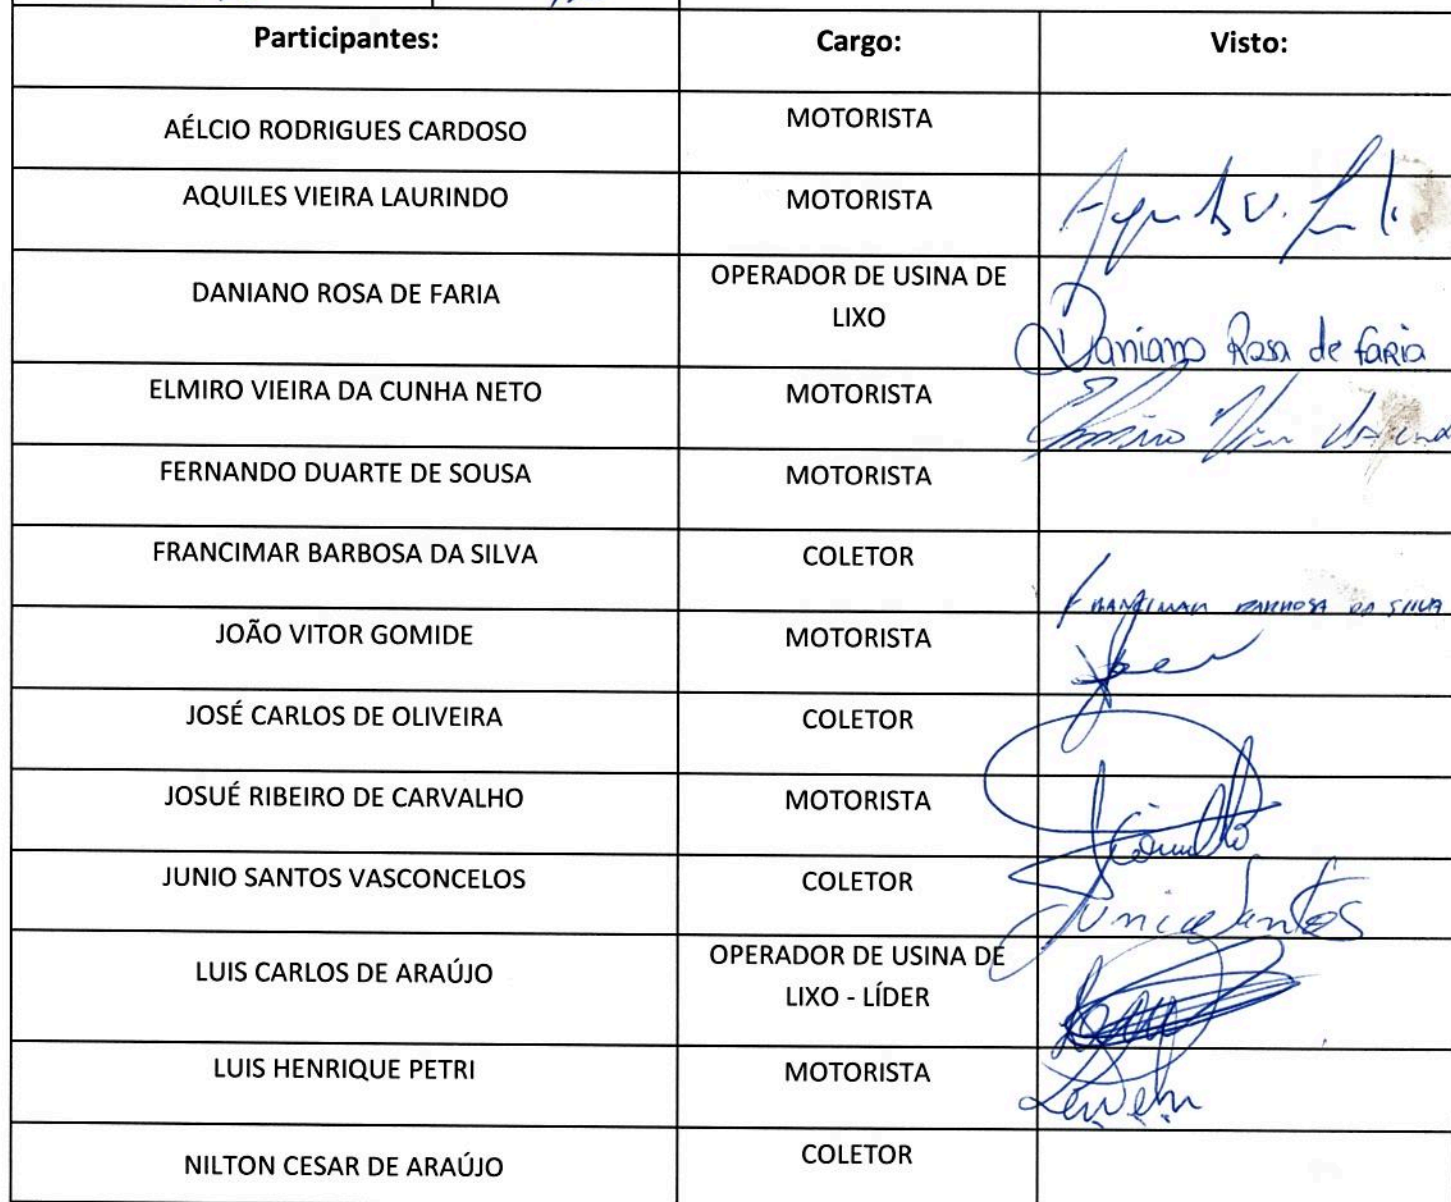 Participantes: Cargo: Visto:
AÉLCIO RODRIGUES CARDOSO MOTORISTA
AQUILES VIEIRA LAURINDO MOTORISTA
DANIANO ROSA DE FARIA OPERADOR DE USINA DE
LIXO
Daniano Rosa de Faria
ELMIRO VIEIRA DA CUNHA NETO MOTORISTA
FERNANDO DUARTE DE SOUSA MOTORISTA
FRANCIMAR BARBOSA DA SILVA COLETOR
FRANCIMAR BARBOSA DA SILVA
JOÃO VITOR GOMIDE MOTORISTA
JOSÉ CARLOS DE OLIVEIRA COLETOR
JOSUÉ RIBEIRO DE CARVALHO MOTORISTA
JUNIO SANTOS VASCONCELOS COLETOR
Junio Santos
LUIS CARLOS DE ARAÚJO OPERADOR DE USINA DE
LIXO - LÍDER
LUIS HENRIQUE PETRI MOTORISTA
NILTON CESAR DE ARAÚJO COLETOR